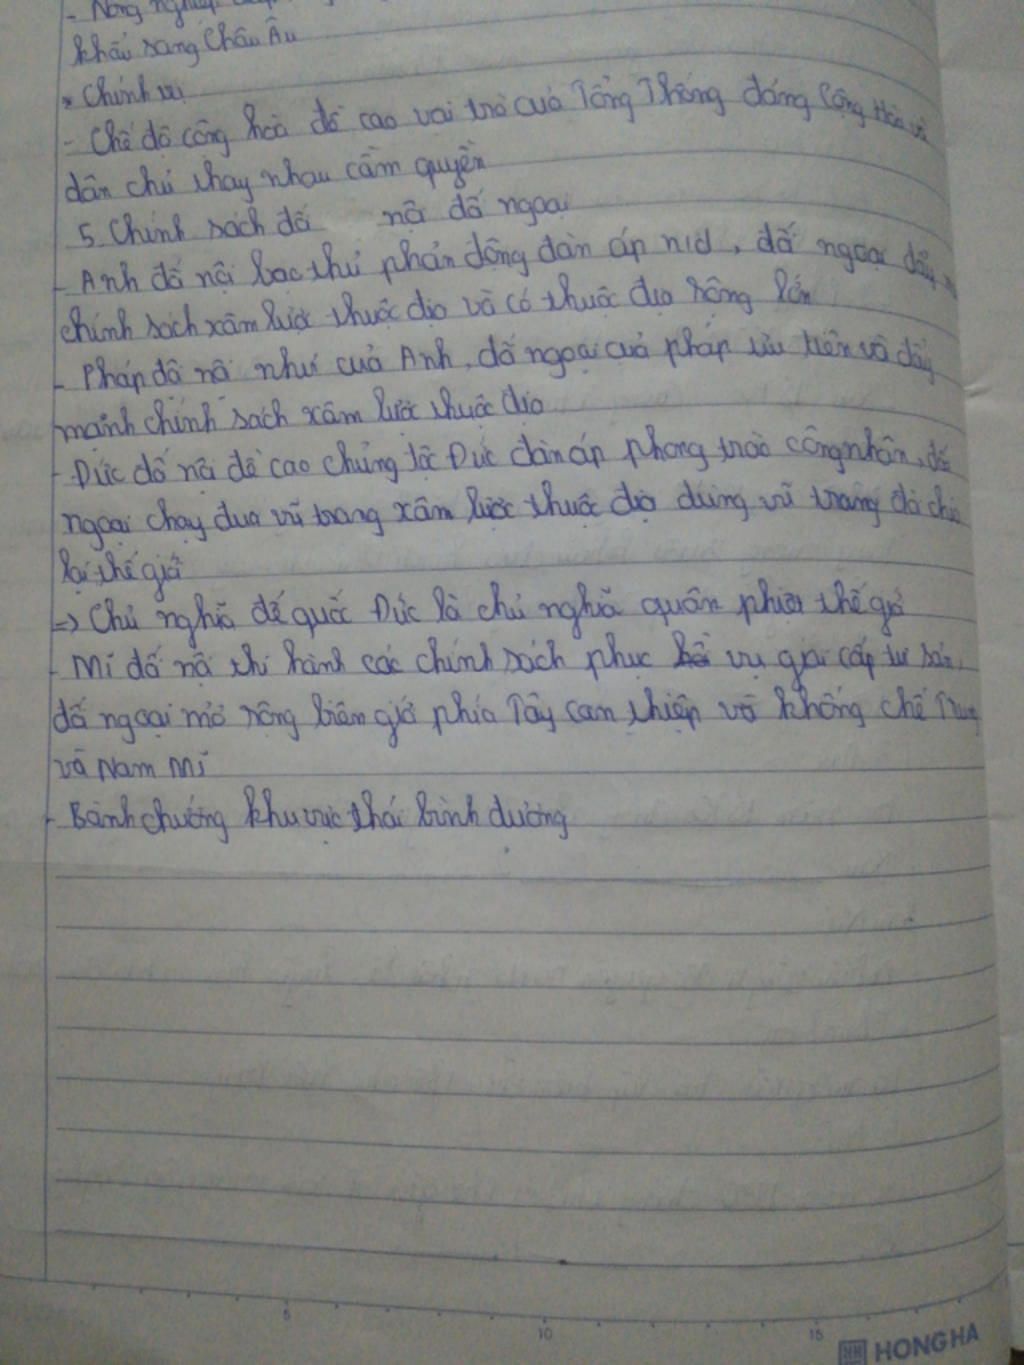 - Nông nghiệp
khẩu sang Châu Âu
* Chính trị
- Chế độ cộng hoà đề cao vai trò của Tổng Thống đảng Cộng Hòa và
dân chủ thay nhau cầm quyền
5. Chính sách đối nội đối ngoại
- Anh đối nội bọc thủ phản động đàn áp nd, đối ngoại đẩy
chính sách xâm lược thuộc địa và có thuộc địa rộng lớn
- Pháp đối nội như của Anh, đối ngoại của pháp ưu tiên và đẩy
mạnh chính sách xâm lược thuộc địa
- Đức đối nội đề cao chủng tộc Đức đàn áp phong trào công nhân, đối
ngoại chạy đua vũ trang xâm lược thuộc địa dùng vũ trang đòi chia
lại thế giới
=> Chủ nghĩa đế quốc Đức là chủ nghĩa quân phiệt thế giới
- Mĩ đối nội thi hành các chính sách phục vụ giai cấp tư sản,
đối ngoại mở rộng biên giới phía Tây can thiệp và khống chế Trung
và Nam Mĩ
- Bành chướng khu vực thái bình dương
5 10 15
HH HONG HA